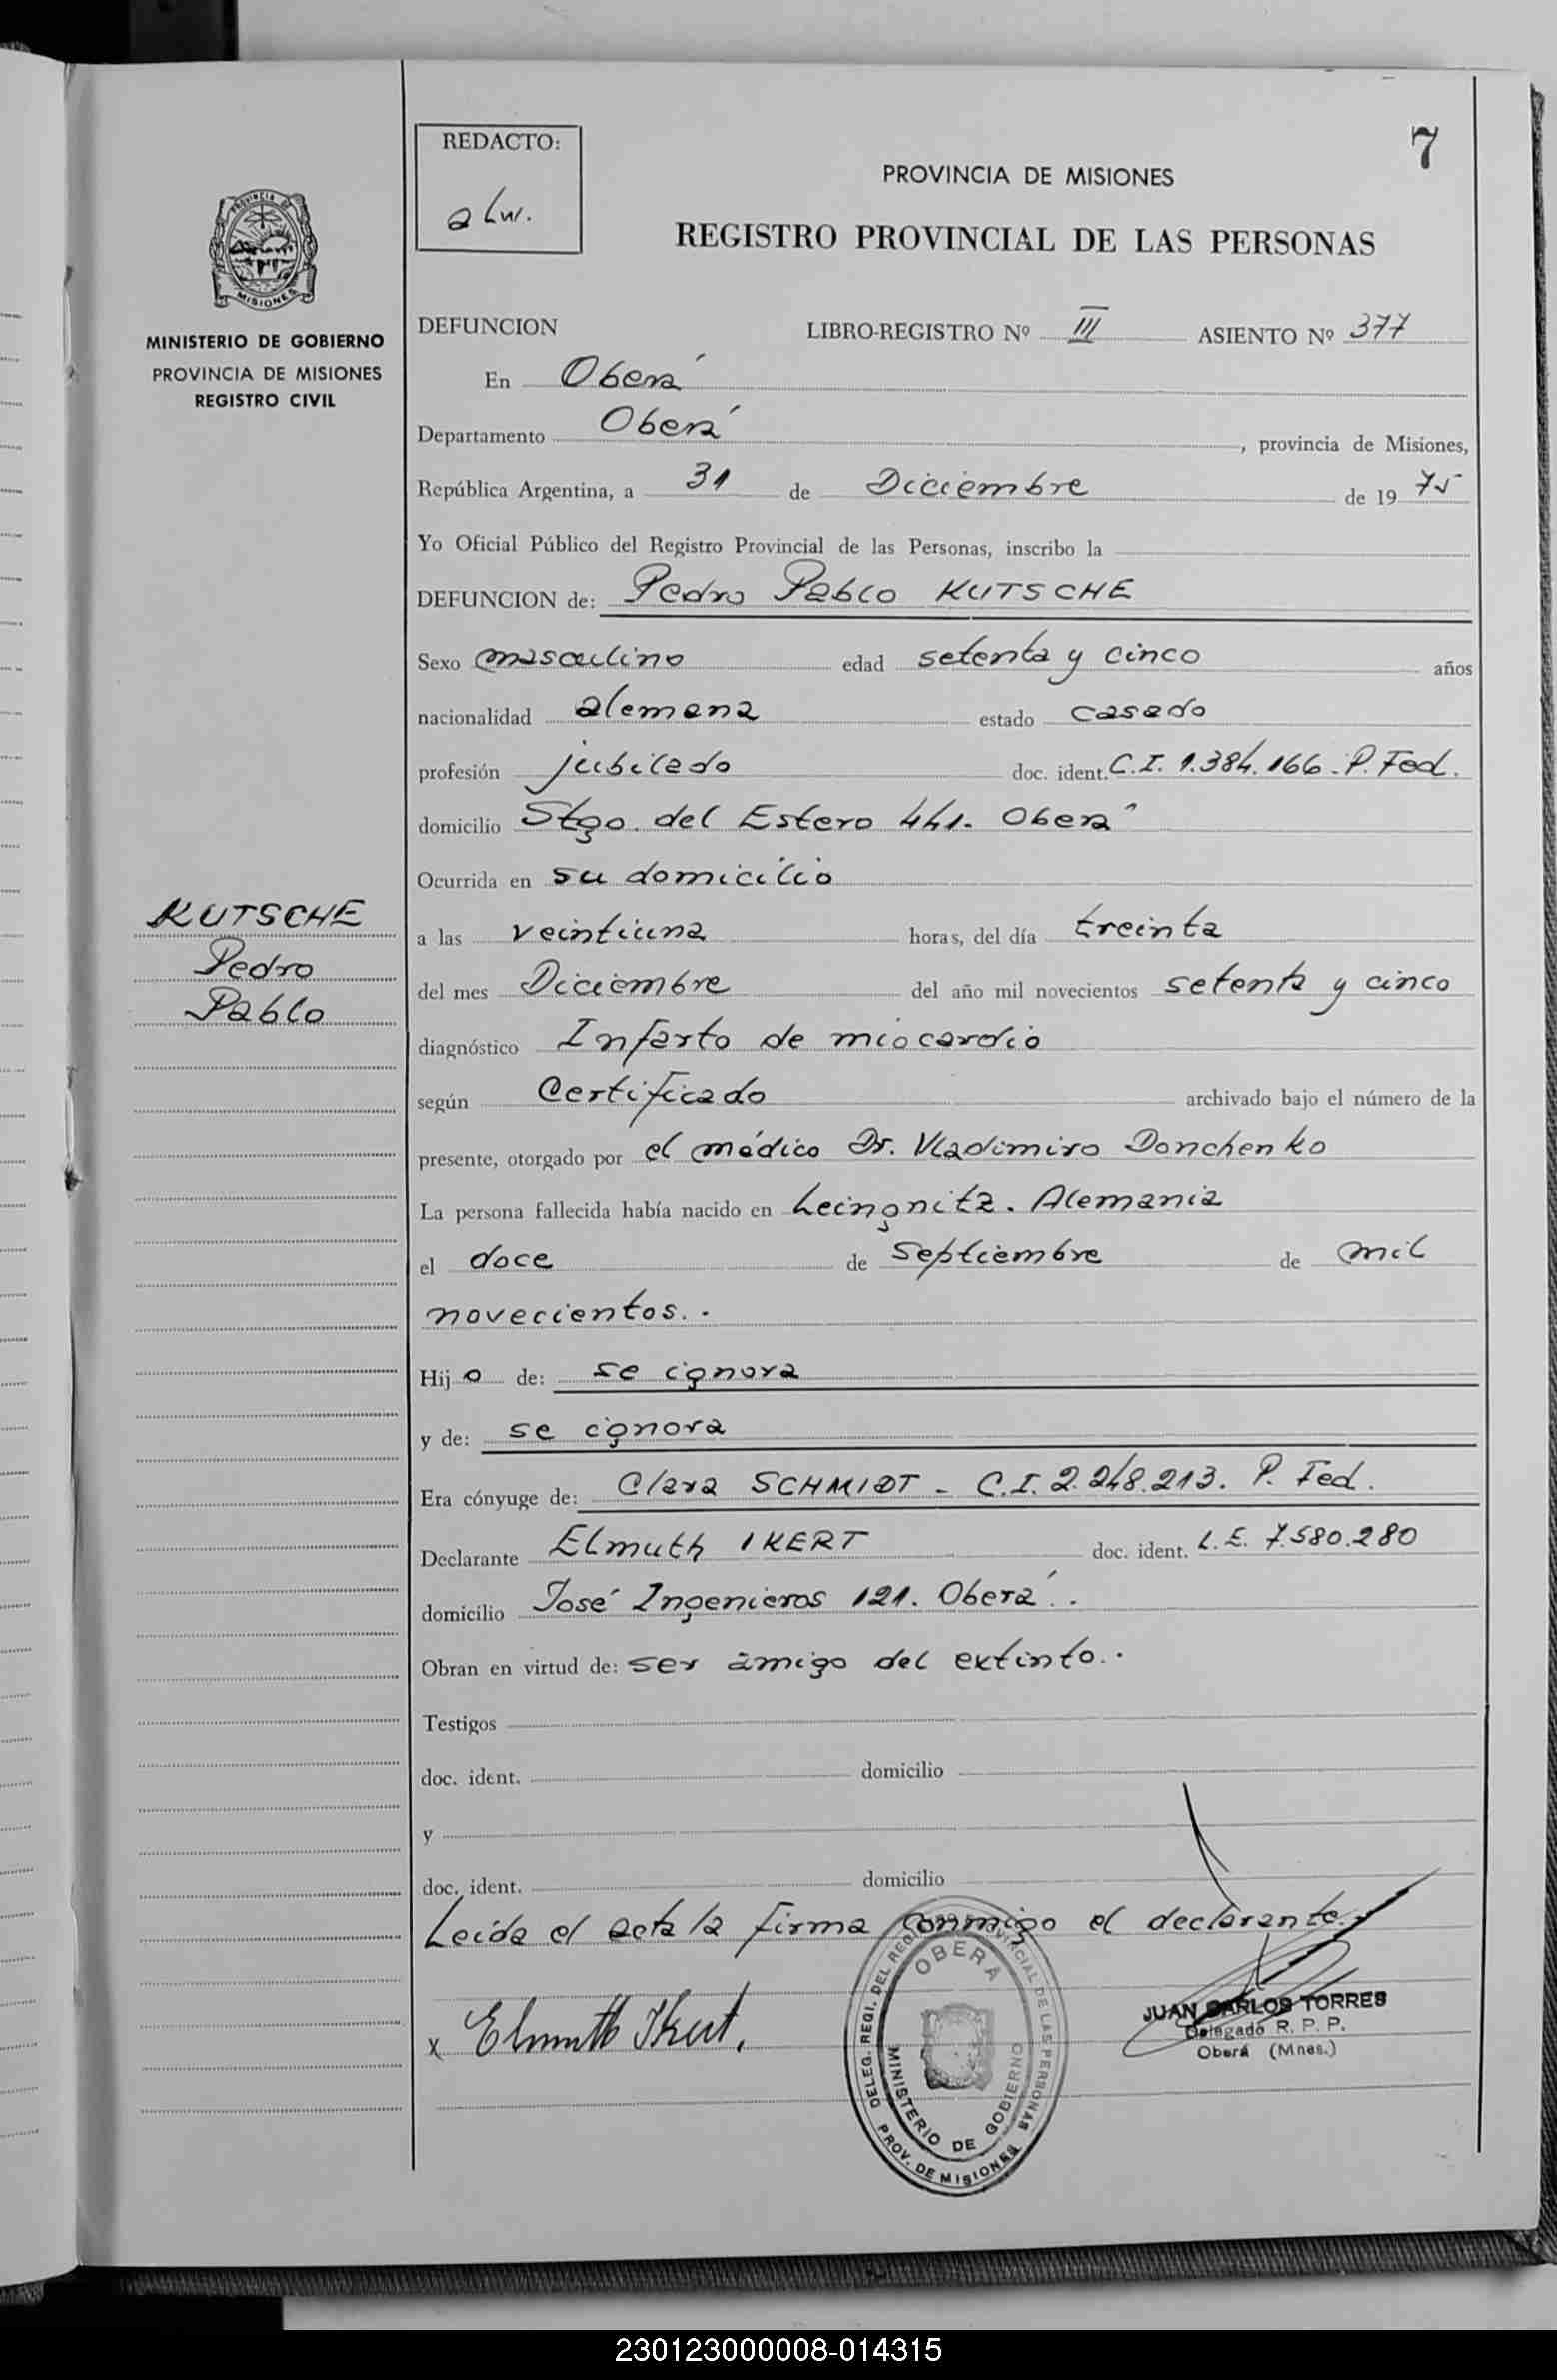 7
REDACTO:
alw.
PROVINCIA DE MISIONES
REGISTRO PROVINCIAL DE LAS PERSONAS
PROVINCIA DE
MISIONES
MINISTERIO DE GOBIERNO
PROVINCIA DE MISIONES
REGISTRO CIVIL
KUTSCHE
Pedro
Pablo
DEFUNCION LIBRO-REGISTRO Nº III ASIENTO Nº 377
En Oberá
Departamento Oberá, provincia de Misiones,
República Argentina, a 31 de Diciembre de 19 75
Yo Oficial Público del Registro Provincial de las Personas, inscribo la
DEFUNCION de: Pedro Pablo KUTSCHE
Sexo masculino edad setenta y cinco años
nacionalidad alemana estado casado
profesión jubilado doc. ident. C.I. 1.384.166. P. Fed.
domicilio Stgo. del Estero 441. Oberá
Ocurrida en su domicilio
a las veintiuna horas, del día treinta
del mes Diciembre del año mil novecientos setenta y cinco
diagnóstico Infarto de miocardio
según Certificado archivado bajo el número de la
presente, otorgado por el médico Dr. Vladimiro Donchenko
La persona fallecida había nacido en Leingnitz. Alemania
el doce de Septiembre de mil
novecientos..
Hijo de: se ignora
y de: se ignora
Era cónyuge de: Clara SCHMIDT - C.I. 2.248.213. P. Fed.
Declarante Elmuth IKERT doc. ident. L.E. 7.580.280
domicilio José Ingenieros 121. Oberá..
Obran en virtud de: ser amigo del extinto..
Testigos
doc. ident. domicilio
y
doc. ident. domicilio
Leída el acta la firma conmigo el declarante.
x Elmuth Ikert.
DELEG. REGI. DEL REGISTRO PROVINCIAL DE LAS PERSONAS
OBERA
MINISTERIO DE GOBIERNO
PROV. DE MISIONES
JUAN CARLOS TORRES
Delegado R. P. P.
Oberá (Mnes.)
230123000008-014315